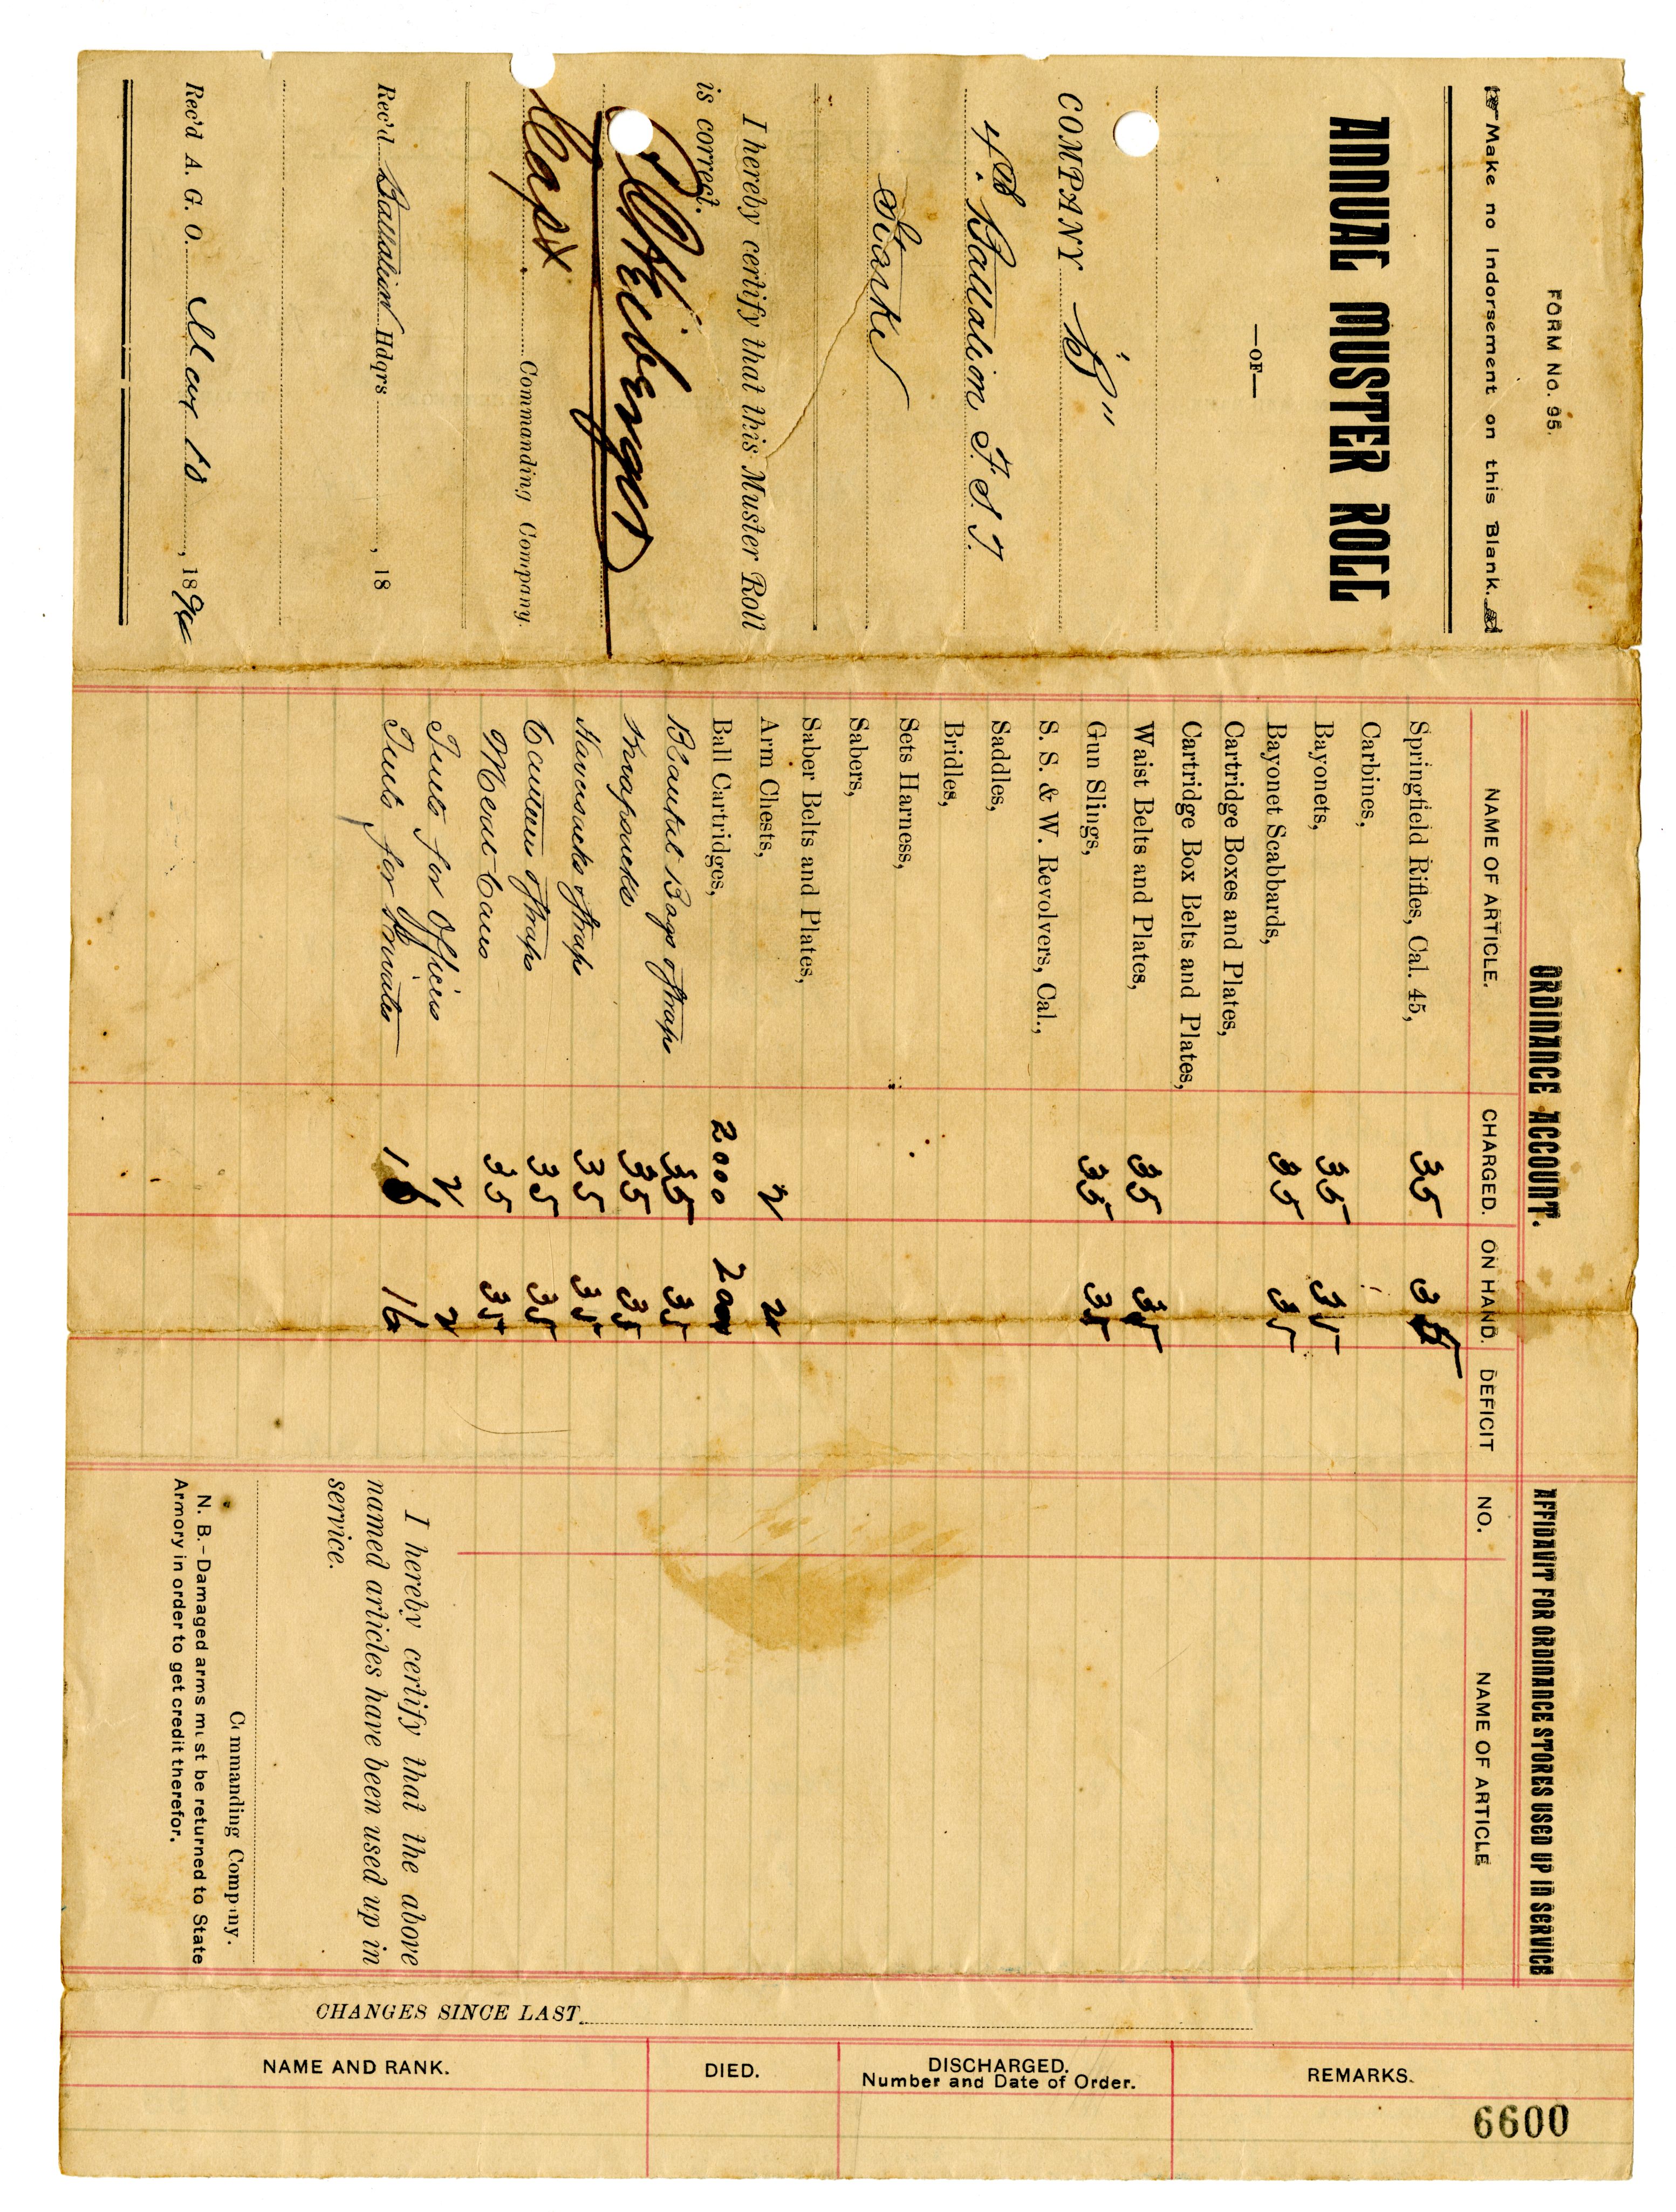 FORM No. 95.
Make no Indorsement on this Blank.
ANNUAL MUSTER ROLL
—OF—
COMPANY "B"
4th Battalion F. S. T.
Starke
I hereby certify that this Muster Roll
is correct.
Capt
Commanding Company.
Rec'd Battalion Hdqrs , 18
Rec'd A. G. O. Mar 18 , 189
ORDINANCE ACCOUNT.
NAME OF ARTICLE. CHARGED. ON HAND. DEFICIT
Springfield Rifles, Cal. 45, 35 35
Carbines,
Bayonets, 35 35
Bayonet Scabbards, 35 35
Cartridge Boxes and Plates,
Cartridge Box Belts and Plates,
Waist Belts and Plates, 35 35
Gun Slings, 35 35
S. S. & W. Revolvers, Cal.,
Saddles,
Bridles,
Sets Harness,
Sabers,
Saber Belts and Plates,
Arm Chests, 2 2
Ball Cartridges, 2000 200
Blanket Bags & Straps 35 35
Knapsacks 35 35
Haversacks & Straps 35 35
Canteens & Straps 35 35
Meat Cans 35 35
Tents for Officers 2 2
Tents for Privates 16 16
AFFIDAVIT FOR ORDINANCE STORES USED UP IN SERVICE
NO. NAME OF ARTICLE
I hereby certify that the above
named articles have been used up in
service.
Commanding Company.
N. B.-Damaged arms must be returned to State
Armory in order to get credit therefor.
CHANGES SINCE LAST
NAME AND RANK. DIED. DISCHARGED. Number and Date of Order. REMARKS.
6600